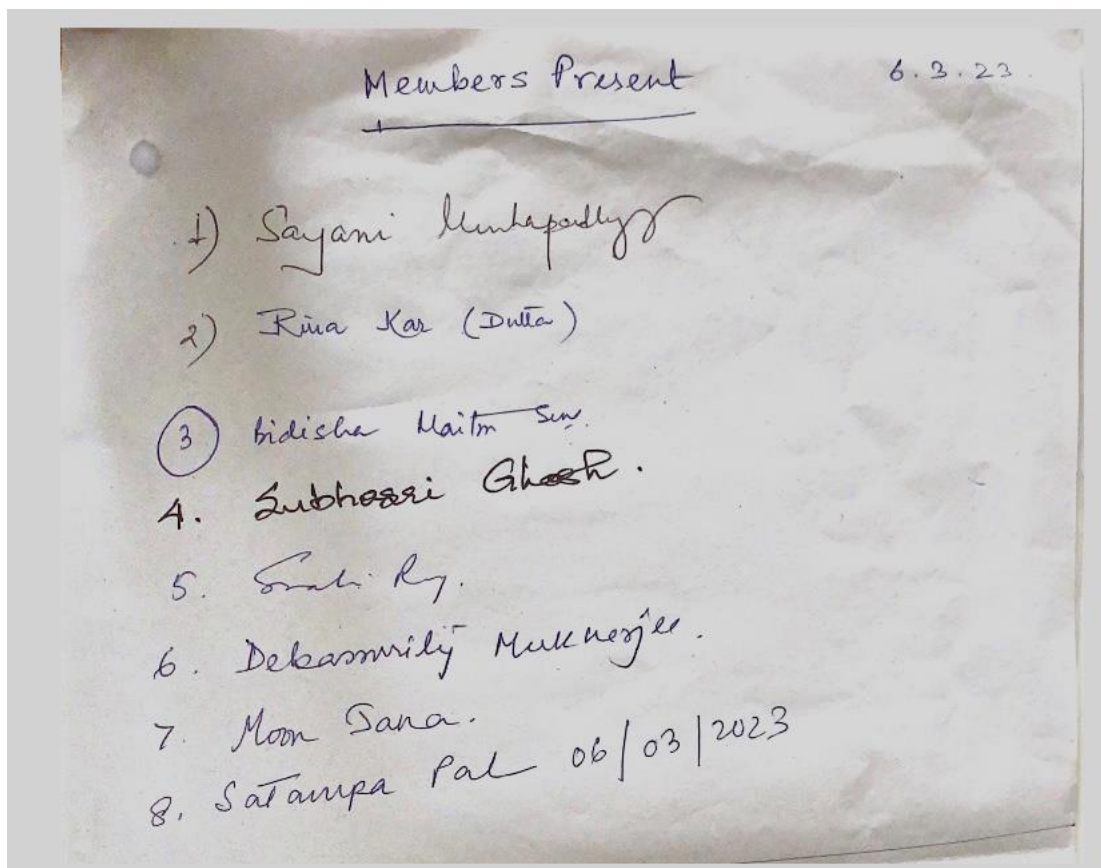 Members Present 6.3.23.
1) Sayani Mukhopadhyay
2) Rina Kar (Dutta)
3 Bidisha Maitra Sen.
4. Subhasri Ghosh.
5. Roy.
6. Mukherjee.
7. Moon Jana.
8. Satampa Pal 06/03/2023